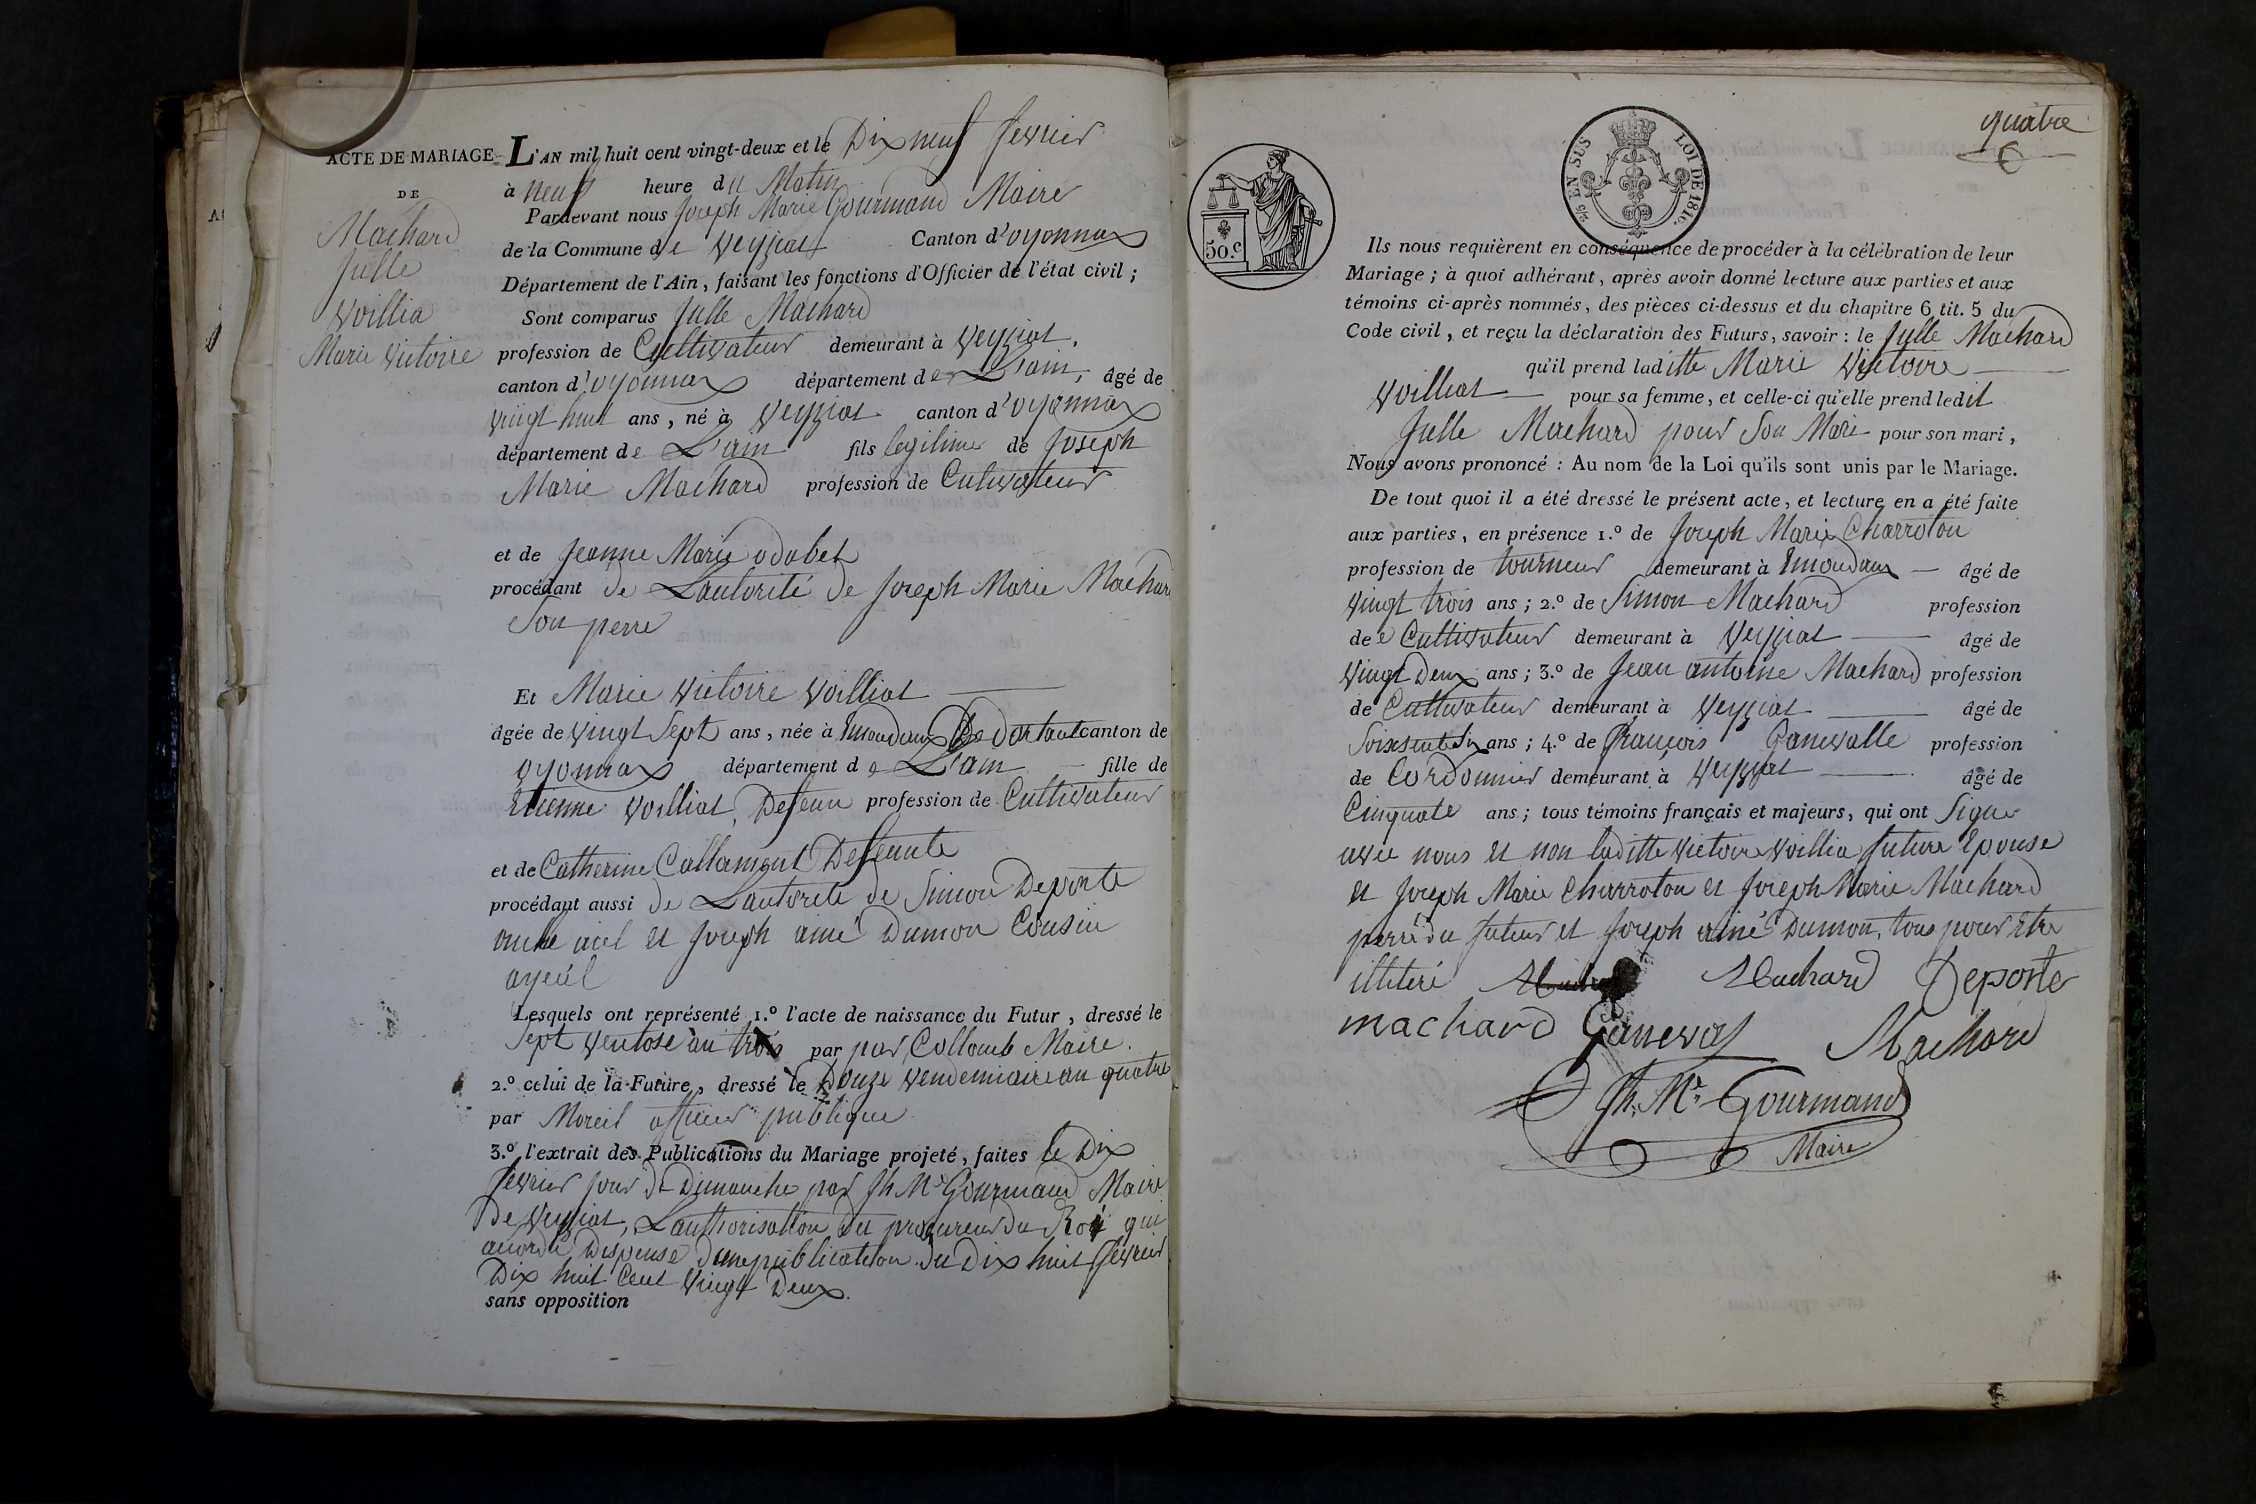 ACTE DE MARIAGE
DE
Machard
Julle
Voillia
Marie Victoire
L'AN mil huit cent vingt-deux et le Dix neuf fevrier
à neuf heure du Matin
Pardevant nous Joseph Marie Gourmand Maire
de la Commune de Veyziat Canton d'oyonnax
Département de l'Ain, faisant les fonctions d'Officier de l'état civil ;
Sont comparus Julle Machard
profession de Cultivateur demeurant à Veyziat,
canton d'oyonnax département de L'ain, âgé de
vingt huit ans, né à Veyziat canton d'oyonnax
département de L'ain fils legitime de Joseph
Marie Machard profession de Cultivateur
et de Jeanne Marie odobet
procédant de Lautorité de Joseph Marie Machard
Son perre
Et Marie Victoire Voilliat
âgée de vingt Sept ans, née à Emondaux De Dortant canton de
oyonnax département de L'ain fille de
Etienne Voilliat, Defeun profession de Cultivateur
et de Catherine Collamont Defeunte
procédant aussi de Lautorité de Simon Deporte
et Joseph aimé Dumon Cousin
ayeul
Lesquels ont représenté 1.º l'acte de naissance du Futur, dressé le
Sept Ventose an trois par par Collomb Maire.
2.º celui de la Future, dressé le Douze vendemiaire an quatre
par Moreil officier publique
3.º l'extrait des Publications du Mariage projeté, faites le Dix
fevrier jour de Dimanche par Jh Mie Gourmand Maire
De Veyziat, Lauthorisation du procureur du Roi qui
acorde Dispense d'une publication du Dix huit fevrier
Dix huit Cent vingt Deux.
sans opposition
quatre
50.c
25 EN SUS LOI DE 1816.
Ils nous requièrent en conséquence de procéder à la célébration de leur
Mariage ; à quoi adhérant, après avoir donné lecture aux parties et aux
témoins ci-après nommés, des pièces ci-dessus et du chapitre 6 tit. 5 du
Code civil, et reçu la déclaration des Futurs, savoir : le Julle Machard
qu'il prend laditte Marie Victoire
Voilliat pour sa femme, et celle-ci qu'elle prend ledit
Julle Machard pour Son Mari pour son mari,
Nous avons prononcé : Au nom de la Loi qu'ils sont unis par le Mariage.
De tout quoi il a été dressé le présent acte, et lecture en a été faite
aux parties, en présence 1.º de Joseph Marie Charroton
profession de tourneur demeurant à Emondaux âgé de
vingt trois ans ; 2.º de Simon Machard profession
de Cultivateur demeurant à Veyziat âgé de
vingt Deux ans ; 3.º de Jean antoine Machard profession
de Cultivateur demeurant à Veyziat âgé de
Soixsente Six ans ; 4.º de François Ganevalle profession
de Cordonnier demeurant à Veyziat âgé de
Cinquate ans ; tous témoins français et majeurs, qui ont Signé
avec nous et non laditte Victoire Voillia future Epouse
et Joseph Marie Charroton et Joseph Marie Machard
perre du futeur et Joseph aimé Dumon, tous pour Etre
illiteré Machard Deporte
machard Ganeval Machard
Jh. Mie Gourmand
Maire